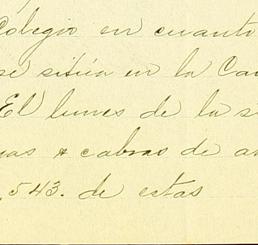 Colegio en cuanto
se sitúa en la
El lunes de la
& cabras de
543. de estas